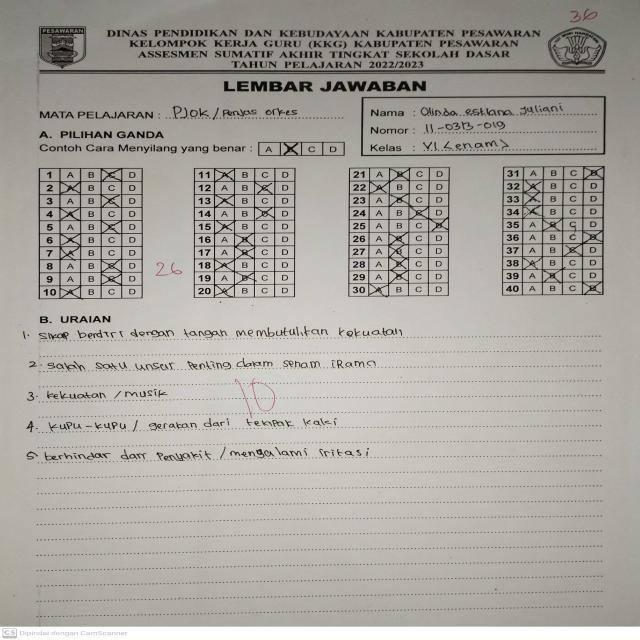 36
PESAWARAN
DINAS PENDIDIKAN DAN KEBUDAYAAN KABUPATEN PESAWARAN
KELOMPOK KERJA GURU (KKG) KABUPATEN PESAWARAN
ASSESMEN SUMATIF AKHIR TINGKAT SEKOLAH DASAR
TAHUN PELAJARAN 2022/2023
LEMBAR JAWABAN
MATA PELAJARAN : PJok/Penjas orkes
Nama : Olinda Juliani
Nomor : 11-0313-019
Kelas : VI <enam>
A. PILIHAN GANDA
Contoh Cara Menyilang yang benar : A B C D
1 A B C D 11 A B C D 21 A B C D 31 A B C D
2 A B C D 12 A B C D 22 A B C D 32 A B C D
3 A B C D 13 A B C D 23 A B C D 33 A B C D
4 A B C D 14 A B C D 24 A B C D 34 A B C D
5 A B C D 15 A B C D 25 A B C D 35 A B C D
6 A B C D 16 A B C D 26 A B C D 36 A B C D
7 A B C D 17 A B C D 27 A B C D 37 A B C D
8 A B C D 18 A B C D 28 A B C D 38 A B C D
9 A B C D 19 A B C D 29 A B C D 39 A B C D
10 A B C D 20 A B C D 30 A B C D 40 A B C D
26
B. URAIAN
1. sikap berdiri dengan tangan membutuhkan kekuatan
2. salah satu unsur Penting dalam senam iRama
3. kekuatan /musik
10
4. kuPu-kuPu / gerakan dari kaki
5 terhindar dari Penyakit /mengalami iritasi
CS Dipindai dengan CamScanner